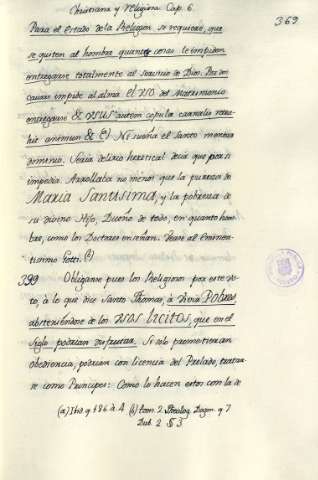 Christiana y Religiosa Cap. 6.
369
Para el estado de la Religion se requiere, que
se quiten al hombre quantas cosas le impiden
entregarse totalmente al servicio de Dios.
causar impide al alma. el uso del Matrimonio
entregarse & usus autem copulæ carnalis
animum &c.
demonio. Seria delirio heretical decir que por si
impedia. Arrollaba no menos que la pureza de
MARIA SANTISIMA, y la pobreza de
su divino Hijo, Dueño de todo, en quanto hom
bre, como los Doctores enseñan. Vease al Eminen
tissimo Gotti. (b)
399 Obliganse pues los Religiosos por este vo
to, à lo que dice Santo Thomas, à vivir POBRES
absteniendose de los USOS LICITOS, que en el
siglo podrian disfrutar. Si solo prometieran
obediencia, podrian con licencia del Prelado, tratar
se como Principes: Como lo hacen estos con la de
(a) Ibid q 186 à 4 (b) tom. 2 Theolog. Dogm. q 7
Dub. 2 § 3